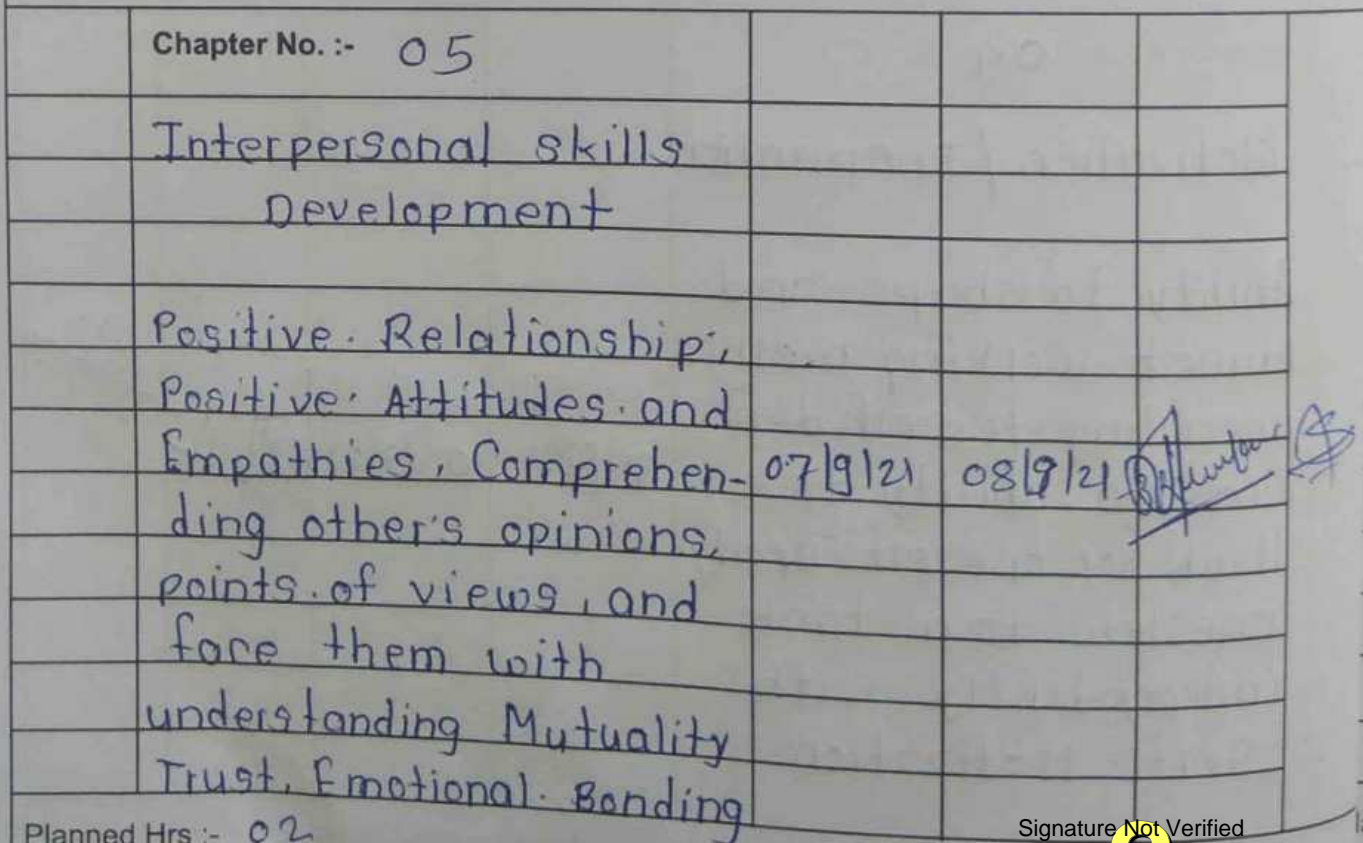 Chapter No. :- 05
Interpersonal skills
Development
Positive. Relationship,
Positive. Attitudes. and
Empathies, Comprehen- 07/9/21 08/9/21
ding other's opinions,
points. of views, and
face them with
understanding Mutuality
Trust, Emotional. Bonding
Planned Hrs :- 02
Signature Not Verified